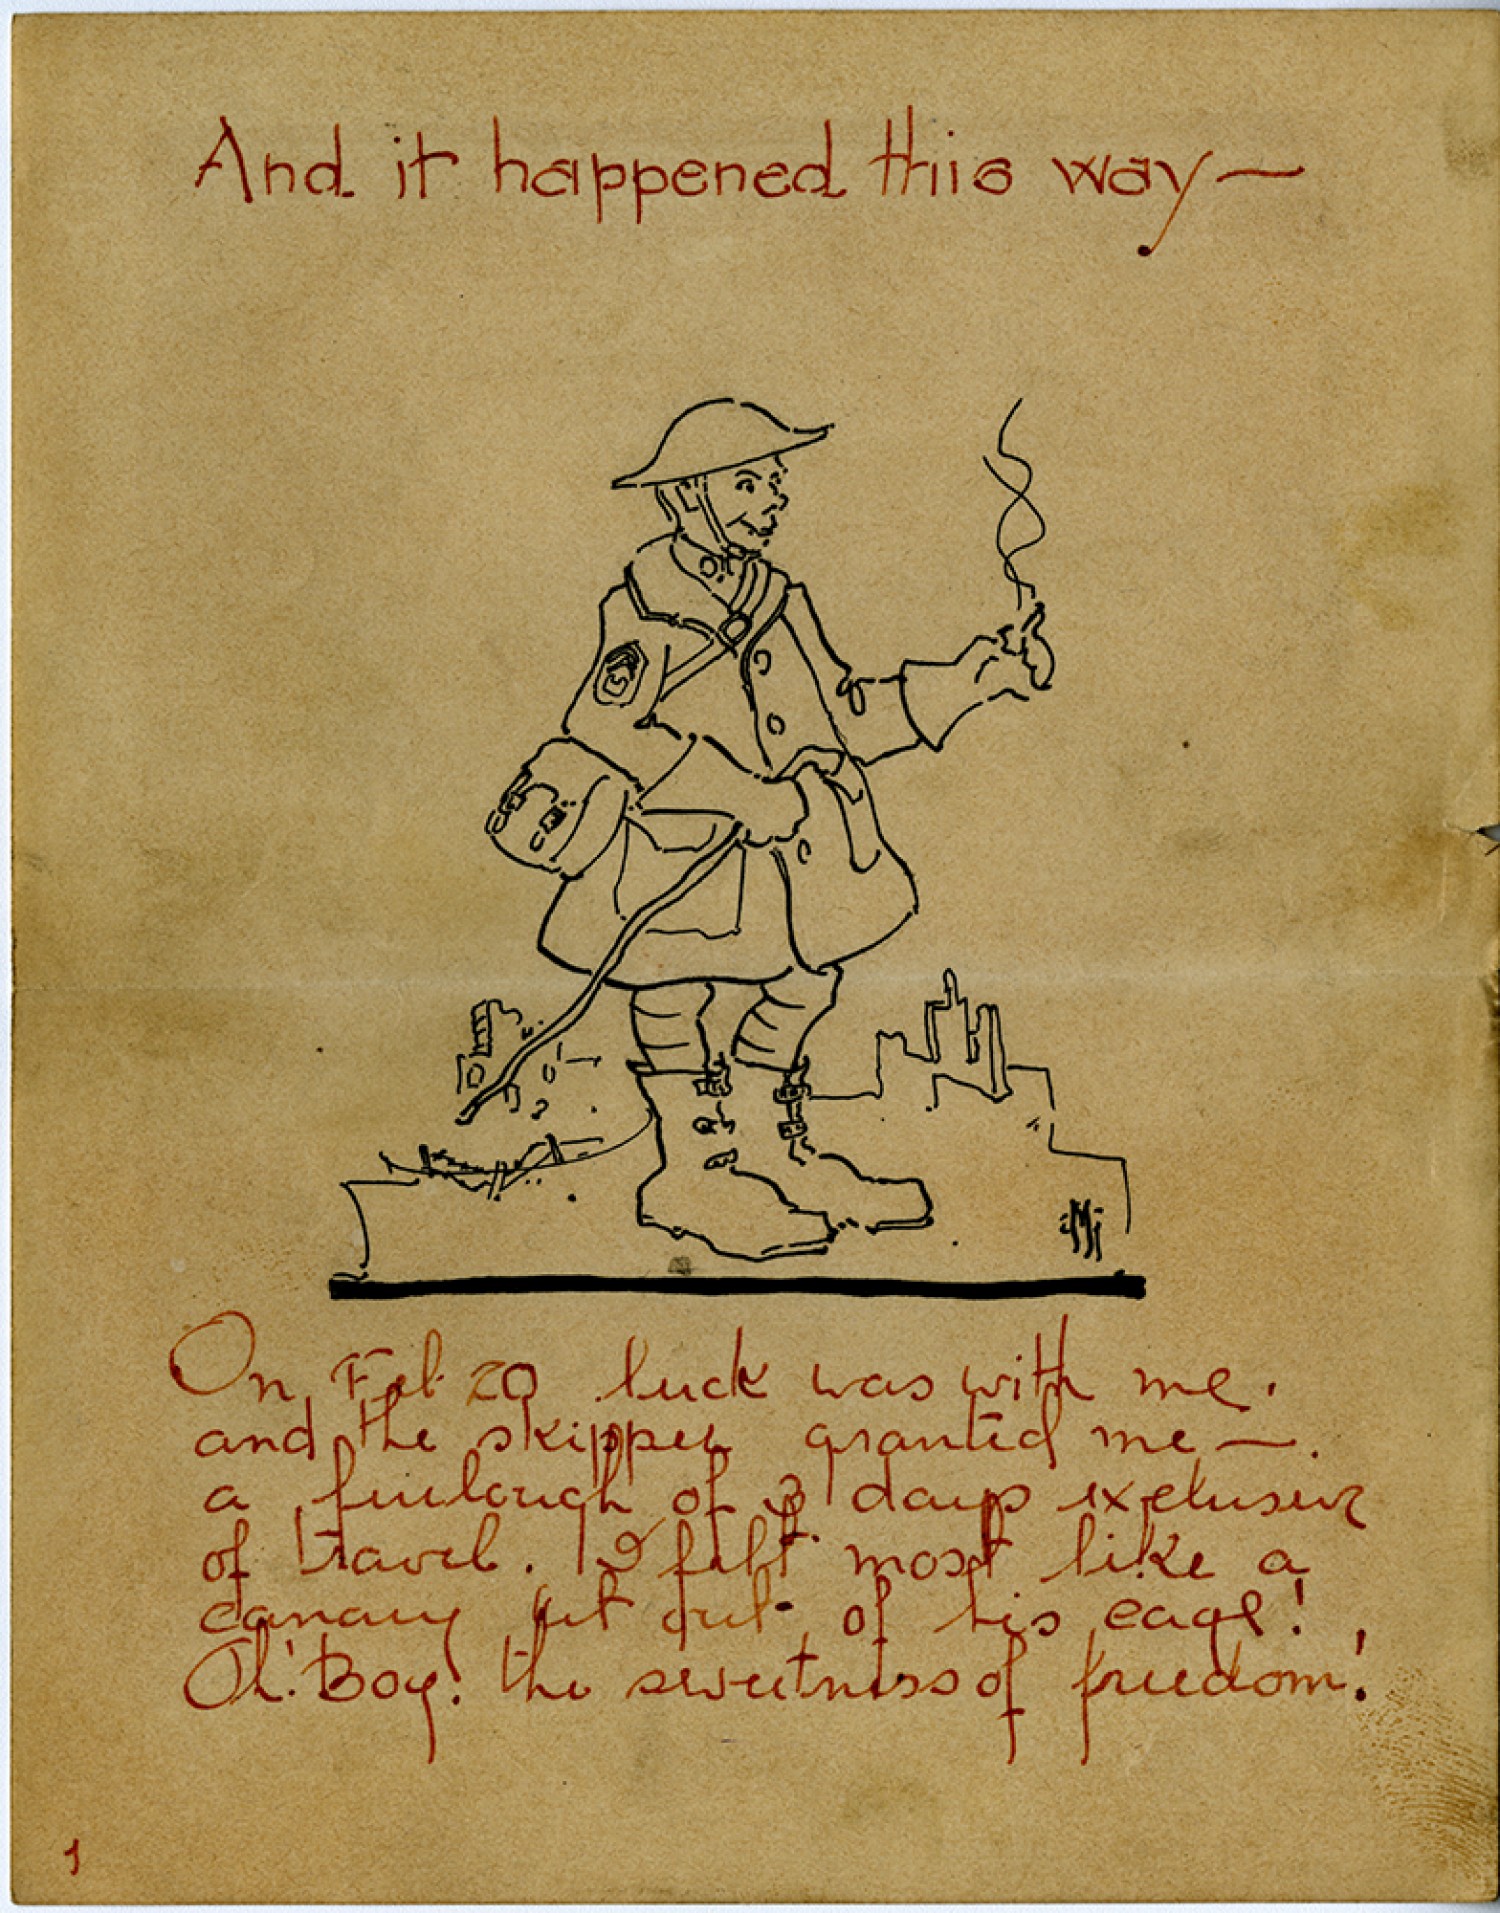 And it happened this way—
On Feb 20 luck was with me.
and the skipper granted me —.
a furlough of 3 days exclusive
of travel. I felt most like a
canary let out of his cage!
Oh! Boy! the sweetness of freedom!
1